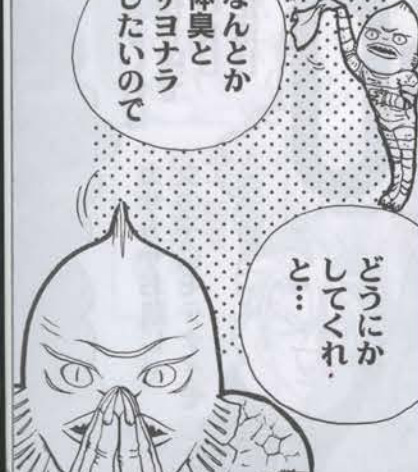 なんとか
体臭と
サヨナラ
したいので
どうにか
してくれ
と…